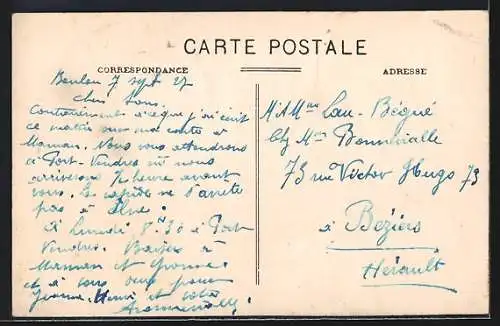 CARTE POSTALE
CORRESPONDANCE
ADRESSE
Boulou 7 sept 27
chers tous.
Contrairement à ce que j'ai écrit
ce matin sur ma carte à
Maman. Nous vous attendrons
à Port-Vendres où nous
arriverons 1 heure avant
vous. Le rapide ne s'arrête
pas à Elne.
à Lundi 8h 30 à Port
Vendres. Baisers à
Maman et Yvonne
et à vous deux pour
Yvonne, Henri et votre
M. & Mme Lau-Bégué
Chz Mme Bonnivialle
73 rue Victor Hugo 73
à Béziers
Hérault